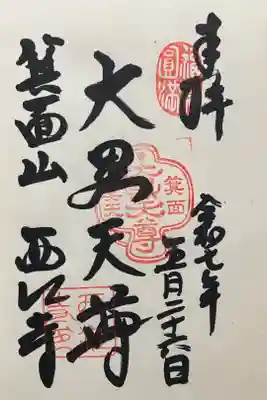 奉拝
圓満
令和七年
五月二十六日
大聖天尊
箕面
箕面山 西江寺